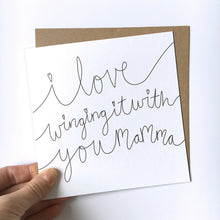 i love
winging it with
you mamma